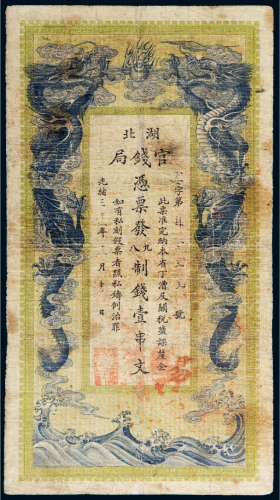 湖北
官錢局
字第 號
此票准完納本省丁漕及關稅鹽課釐金
憑票發九八制錢壹串文
如有私刻假票者照私鑄例治罪
光緒三十 年 月 日